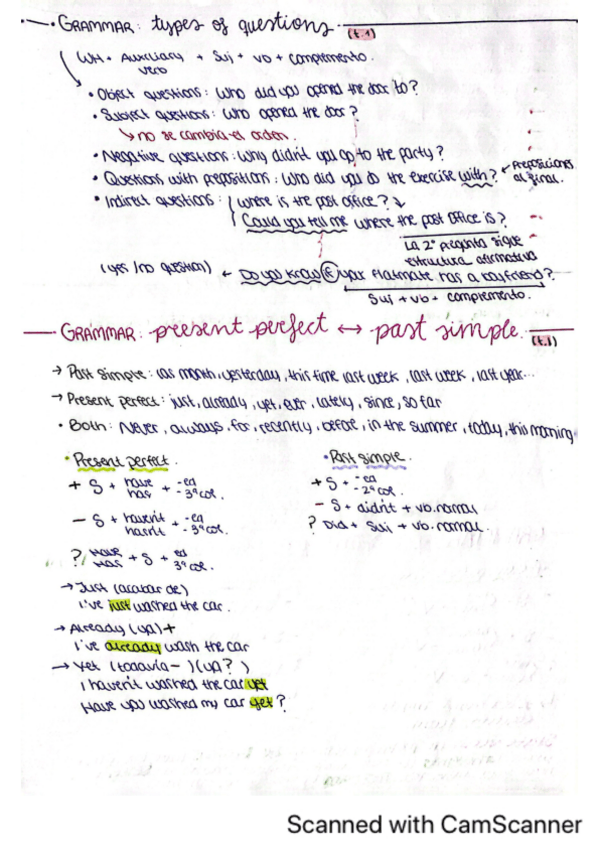 GRAMMAR: types of questions. (t.1)
WH + Auxiliary verb + Suj + vb + complemento.
• Object questions: Who did you opened the door to?
• Subject questions: Who opened the door?
↳ no se cambia el orden.
• Negative questions: Why didn't you go to the party?
• Questions with prepositions: Who did you do the exercise with? ← Preposiciones al final.
• Indirect questions: Where is the post office? ↓
Could you tell me where the post office is?
La 2ª pregunta sigue estructura afirmativa
(yes/no question) ← Do you know if your flatmate has a boyfriend?
Suj + vb + complemento.
GRAMMAR: present perfect ↔ past simple. (t.1)
→ Past simple: las month, yesterday, this time last week, last week, last year...
→ Present perfect: just, already, yet, ever, lately, since, so far
• Both: Never, always, for, recently, before, in the summer, today, this morning
• Present perfect.
+ S + have / has + -ed / -3ª col.
- S + haven't / hasn't + -ed / -3ª col.
? Have / Has + S + ed / 3ª col.
• Past simple.
+ S + -ed / -2ª col.
- S + didn't + vb. normal
? Did + Suj + vb. normal.
→ Just (acabar de)
I've just washed the car.
→ Already (ya) +
I've already wash the car
→ Yet (todavía -) (ya?)
I haven't washed the car yet
Have you washed my car yet?
Scanned with CamScanner